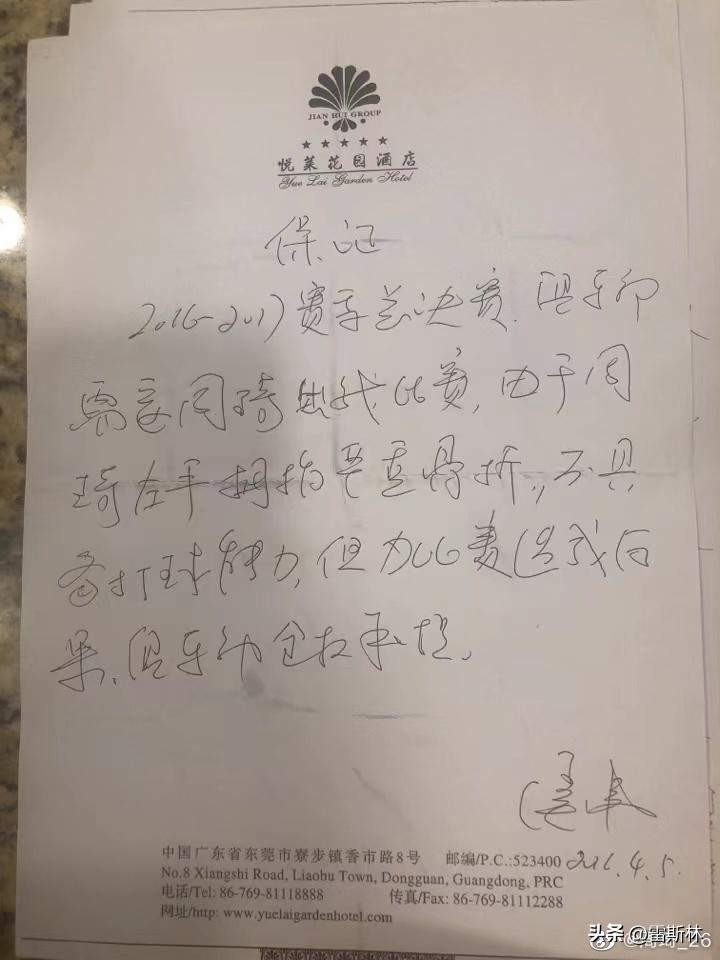 JIAN HUI GROUP
悦莱花园酒店
Yue Lai Garden Hotel
保证
2016-2017赛季总决赛.俱乐部
需要周琦出战比赛,由于周
琦左手拇指严重骨折,,不具
备打球能力,但为比赛造成后
果、俱乐部全权承担.
2016.4.5.
中国广东省东莞市寮步镇香市路8号 邮编/P.C.:523400
No.8 Xiangshi Road, Liaobu Town, Dongguan, Guangdong, PRC
电话/Tel: 86-769-81118888 传真/Fax: 86-769-81112288
网址/http: www.yuelaigardenhotel.com
头条 @雷斯林